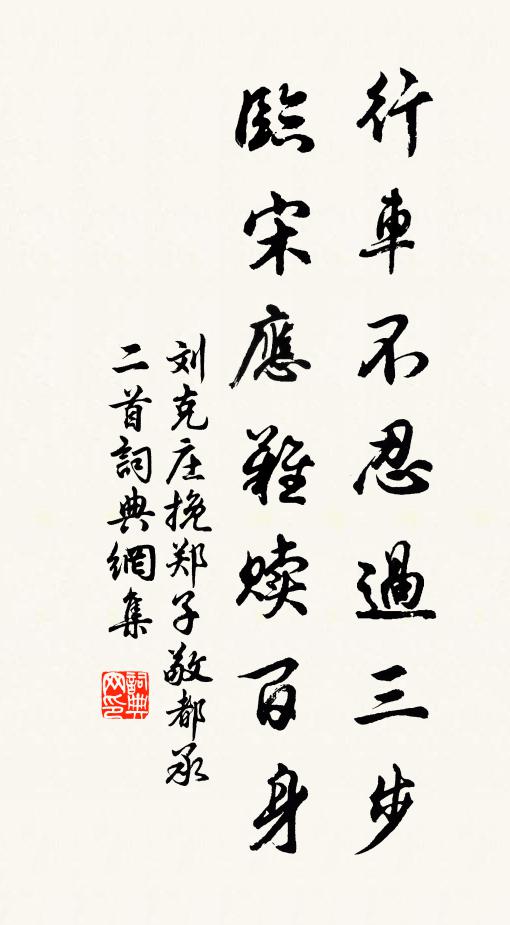 行車不忍過三步
臨宋應難赎百身
刘克庄挽郑子敬都承
二首詞典網集
詞典
网印